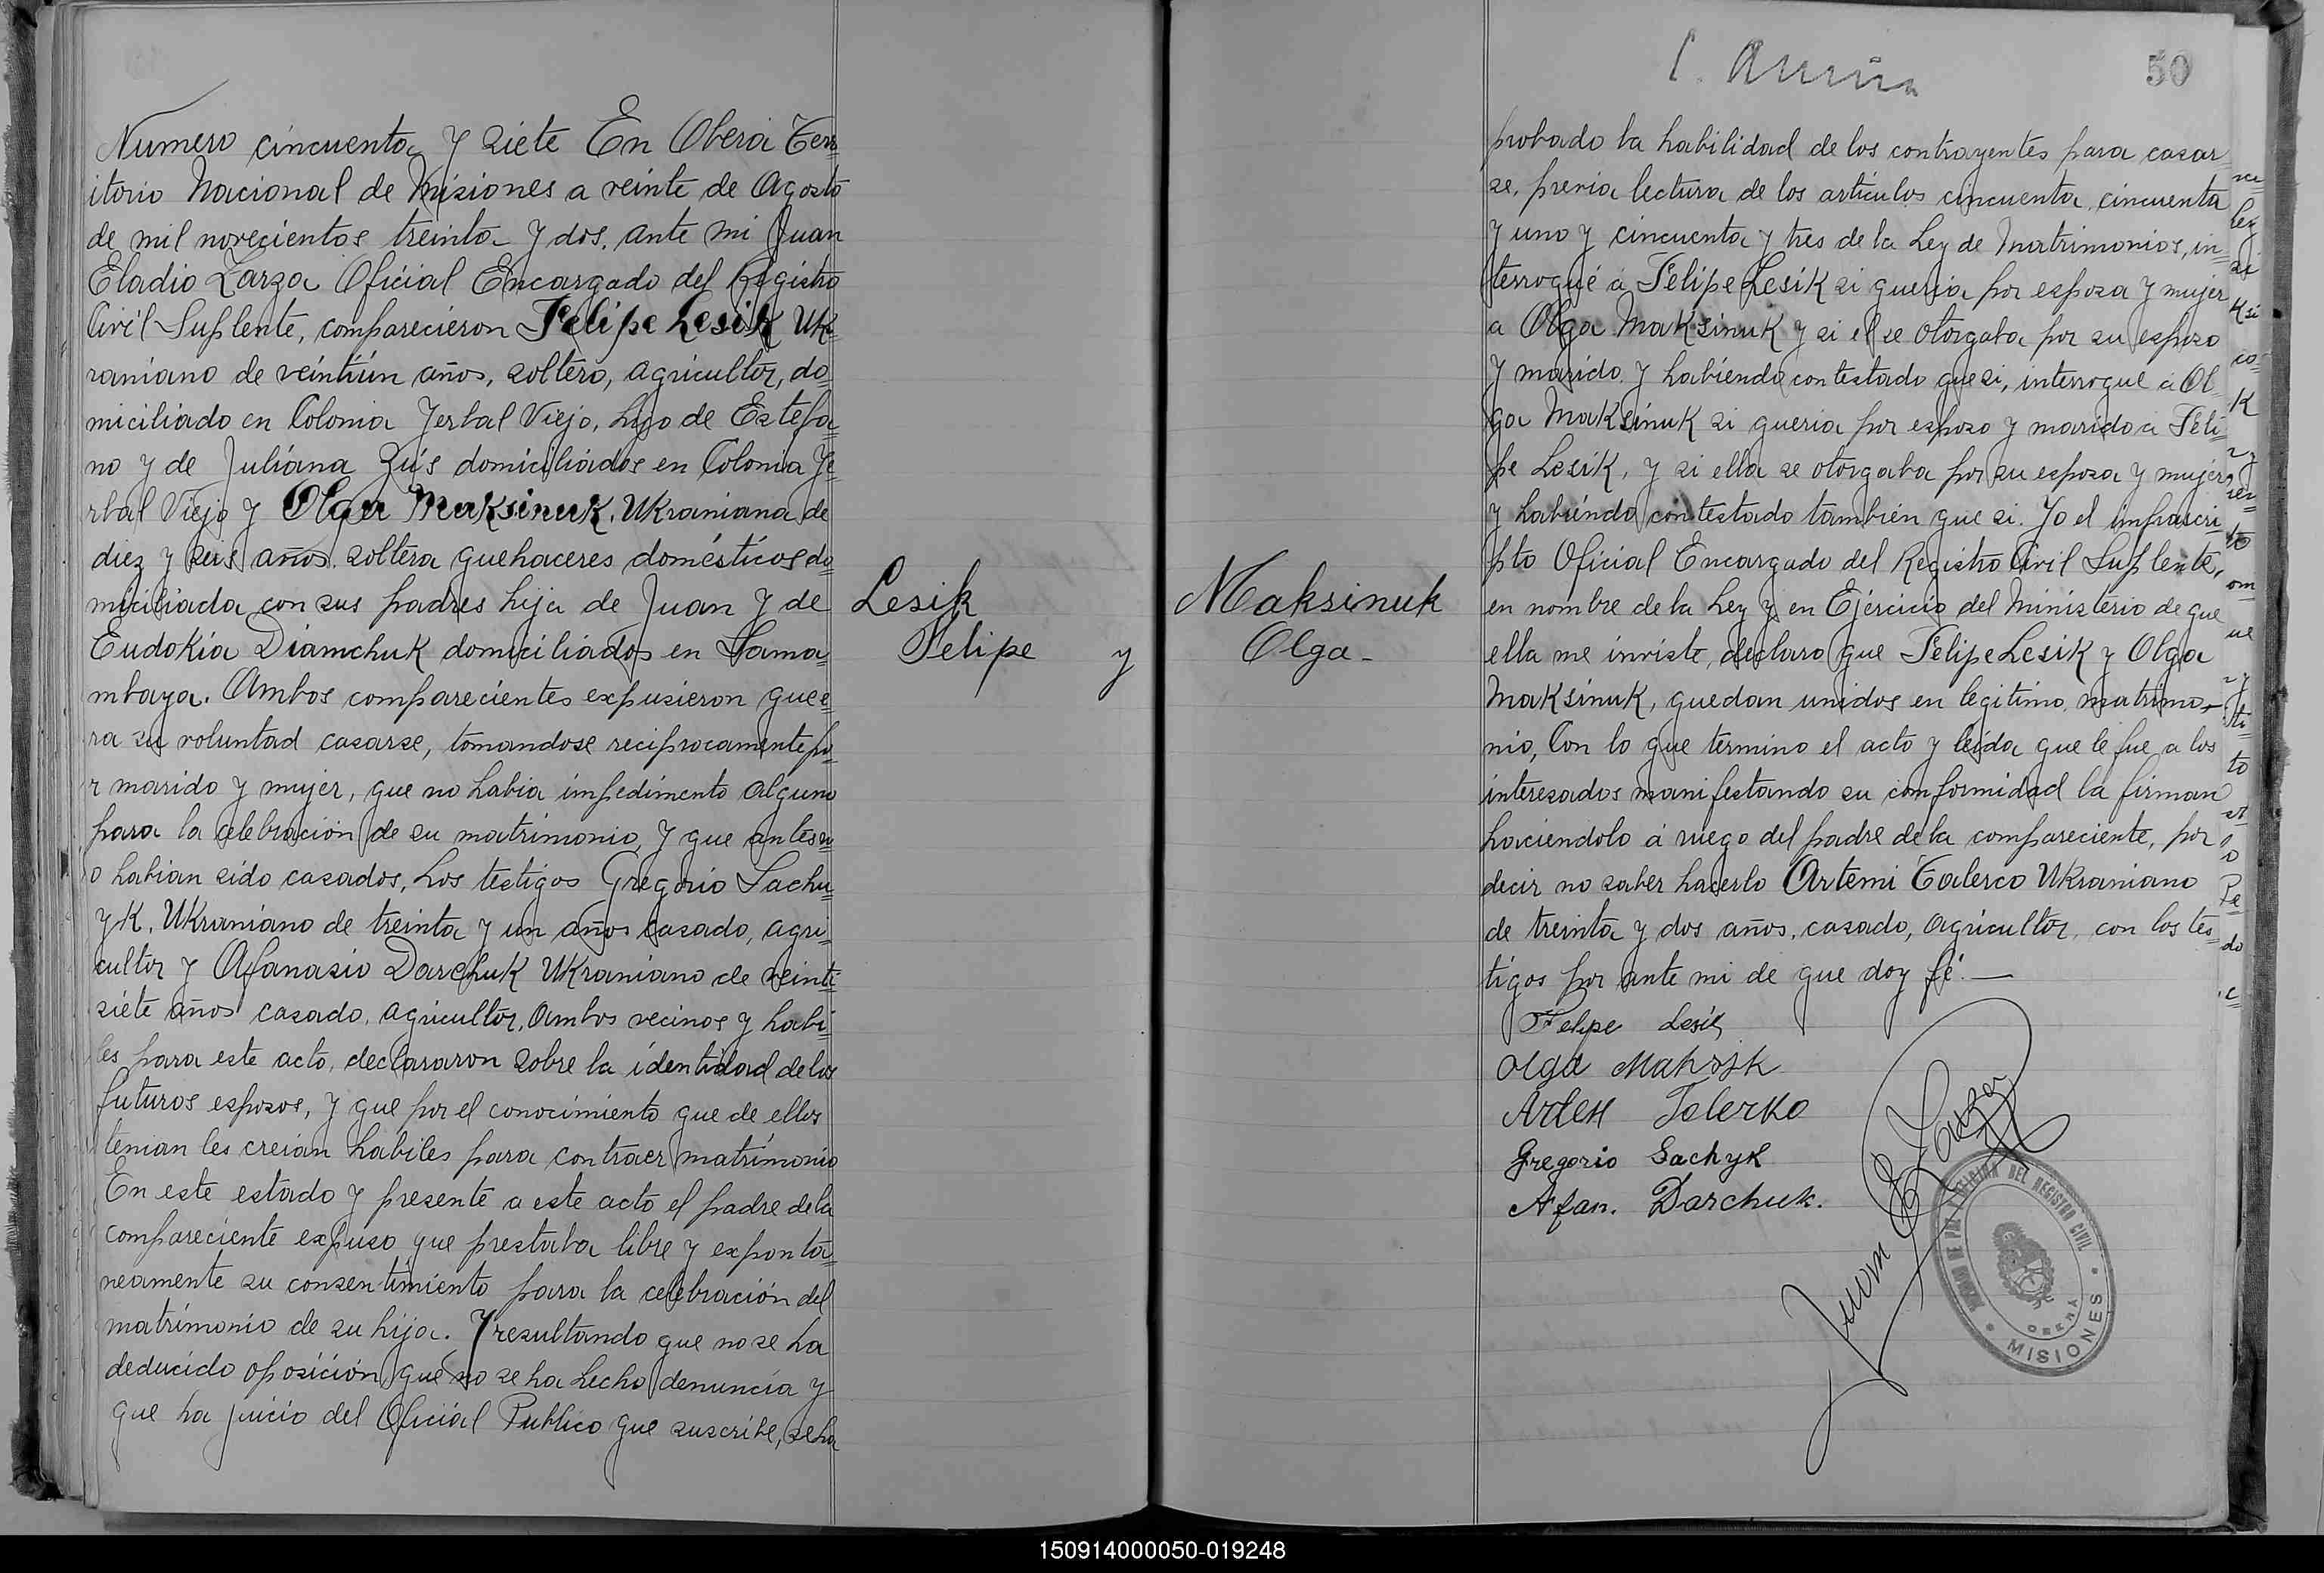 Numero cincuenta y siete En Oberá Terr
itorio Nacional de Misiones a veinte de Agosto
de mil novecientos treinta y dos. ante mi Juan
Eladio Zarza Oficial Encargado del Registro
Civil Suplente, comparecieron Felipe Lesik Uk=
raniano de veintiún años, soltero, agricultor, do=
miciliado en Colonia Yerbal Viejo, hijo de Estefa=
no y de Juliana Zus domiciliados en Colonia Ye=
rbal Viejo y Olga Maksinuk, Ukraniana de
diez y seis años. soltera quehaceres domésticos do=
miciliada con sus padres hija de Juan y de
Eudokia Diamchuk domiciliados en Sama=
mbaya. Ambos comparecientes expusieron que e=
ra su voluntad casarse, tomandose reciprocamente po=
r marido y mujer, que no habia impedimento alguno
para la celebración de su matrimonio, y que antes n=
o habian sido casados, Los testigos Gregorio Sachu=
yk, Ukraniano de treinta y un años casado, agri=
cultor y Afanasio Darchuk Ukraniano de veinti=
siete años casado, agricultor, Ambos vecinos y habi=
les para este acto, declararon sobre la identidad de los
futuros esposos, y que por el conocimiento que de ellos
tenian les creian habiles para contraer matrimonio
En este estado y presente a este acto el padre de la
compareciente expuso que prestaba libre y exponta=
neamente su consentimiento para la celebración del
matrimonio de su hija. Y resultando que no se ha
deducido oposición, que no se ha hecho denuncia y
que ha juicio del Oficial Publico que suscribe, se ha
Lesik
Felipe y
Maksinuk
Olga-
50
probado la habilidad de los contrayentes para casar
se, previa lectura de los artículos cincuenta, cincuenta
y uno y cincuenta y tres de la Ley de Matrimonios, in=
terrogué a Felipe Lesik si queria por esposa y mujer
a Olga Maksinuk y si el se otorgaba por su esposo
y marido y habiendo contestado que si, interrogué a Ol
ga Maksinuk si queria por esposo y marido a Feli=
pe Lesik, y si ella se otorgaba por su esposa y mujer
y habiendo contestado tambien que si. Yo el infrascri
pto Oficial Encargado del Registro Civil Suplente,
en nombre de la Ley y en Ejercicio del Ministerio de que
ella me inviste, declaro que Felipe Lesik y Olga
Maksinuk, quedan unidos en legitimo matrimo-
nio, Con lo que termino el acto y leida que le fue a los
interesados manifestando su conformidad la firman
haciendolo á ruego del padre de la compareciente, por
decir no saber hacerlo Artemi Talerco Ukraniano
de treinta y dos años, casado, agricultor, con los tes=
tigos por ante mi de que doy fé.—
Felipe Lesik
Olga
Talerko
Gregorio Sachyk
Afan. Darchuk.
Juan E Zarza
OFICINA DEL REGISTRO CIVIL
OBERÁ
MISIONES
150914000050-019248